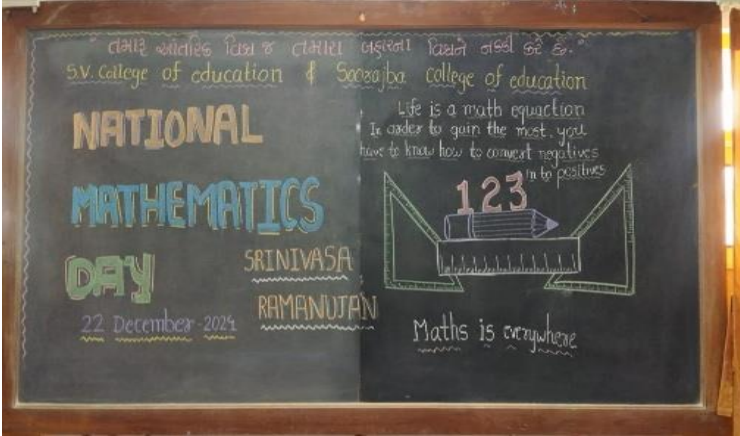 "તમારૂ આંતરિક વિશ્વ જ તમારા બહારના વિશ્વને નક્કી કરે છે."
S.V. College of education & Soorajba college of education
NATIONAL
MATHEMATICS
DAY
SRINIVASA
RAMANUJAN
22 December-2024
Life is a math equaction
In order to gain the most, you
have to know how to convert negatives
in to positives
123
Maths is everywhere